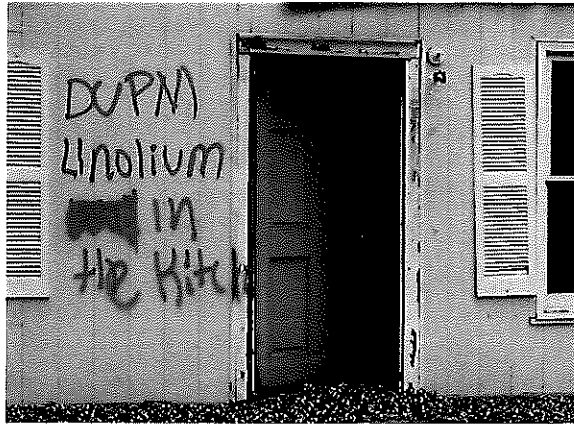 DUPM
Linolium
in
the Kitch